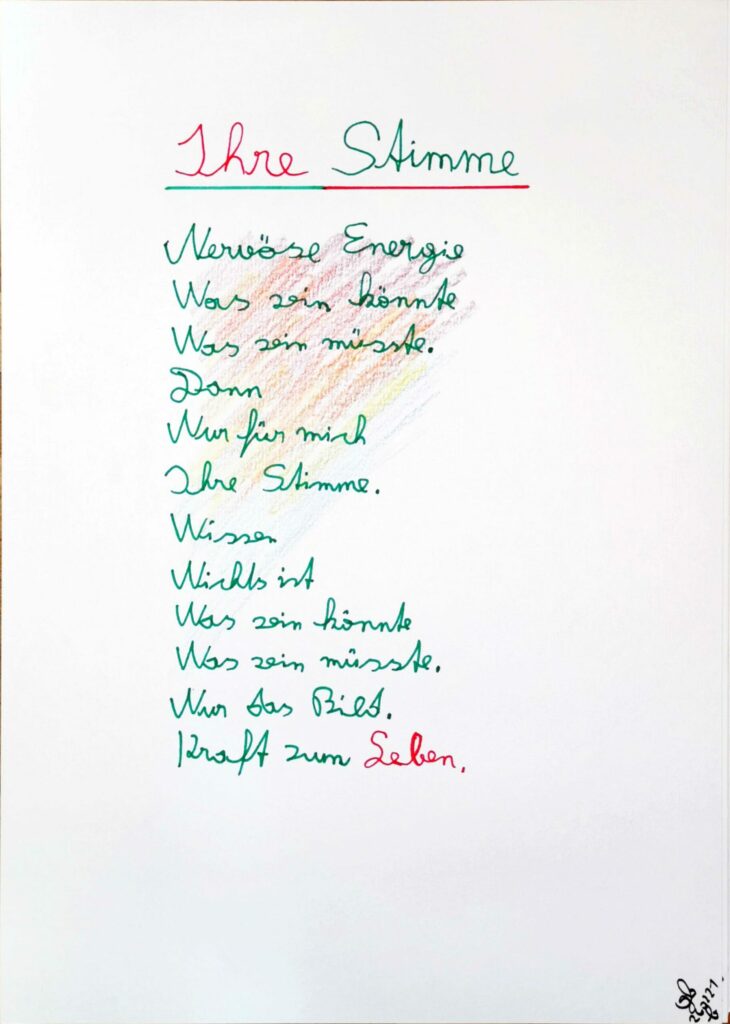 Ihre Stimme
Nervöse Energie
Was sein könnte
Was sein müsste.
Dann
Nur für mich
Ihre Stimme.
Wissen
Nichts ist
Was sein könnte
Was sein müsste.
Nur das Bild.
Kraft zum Leben.